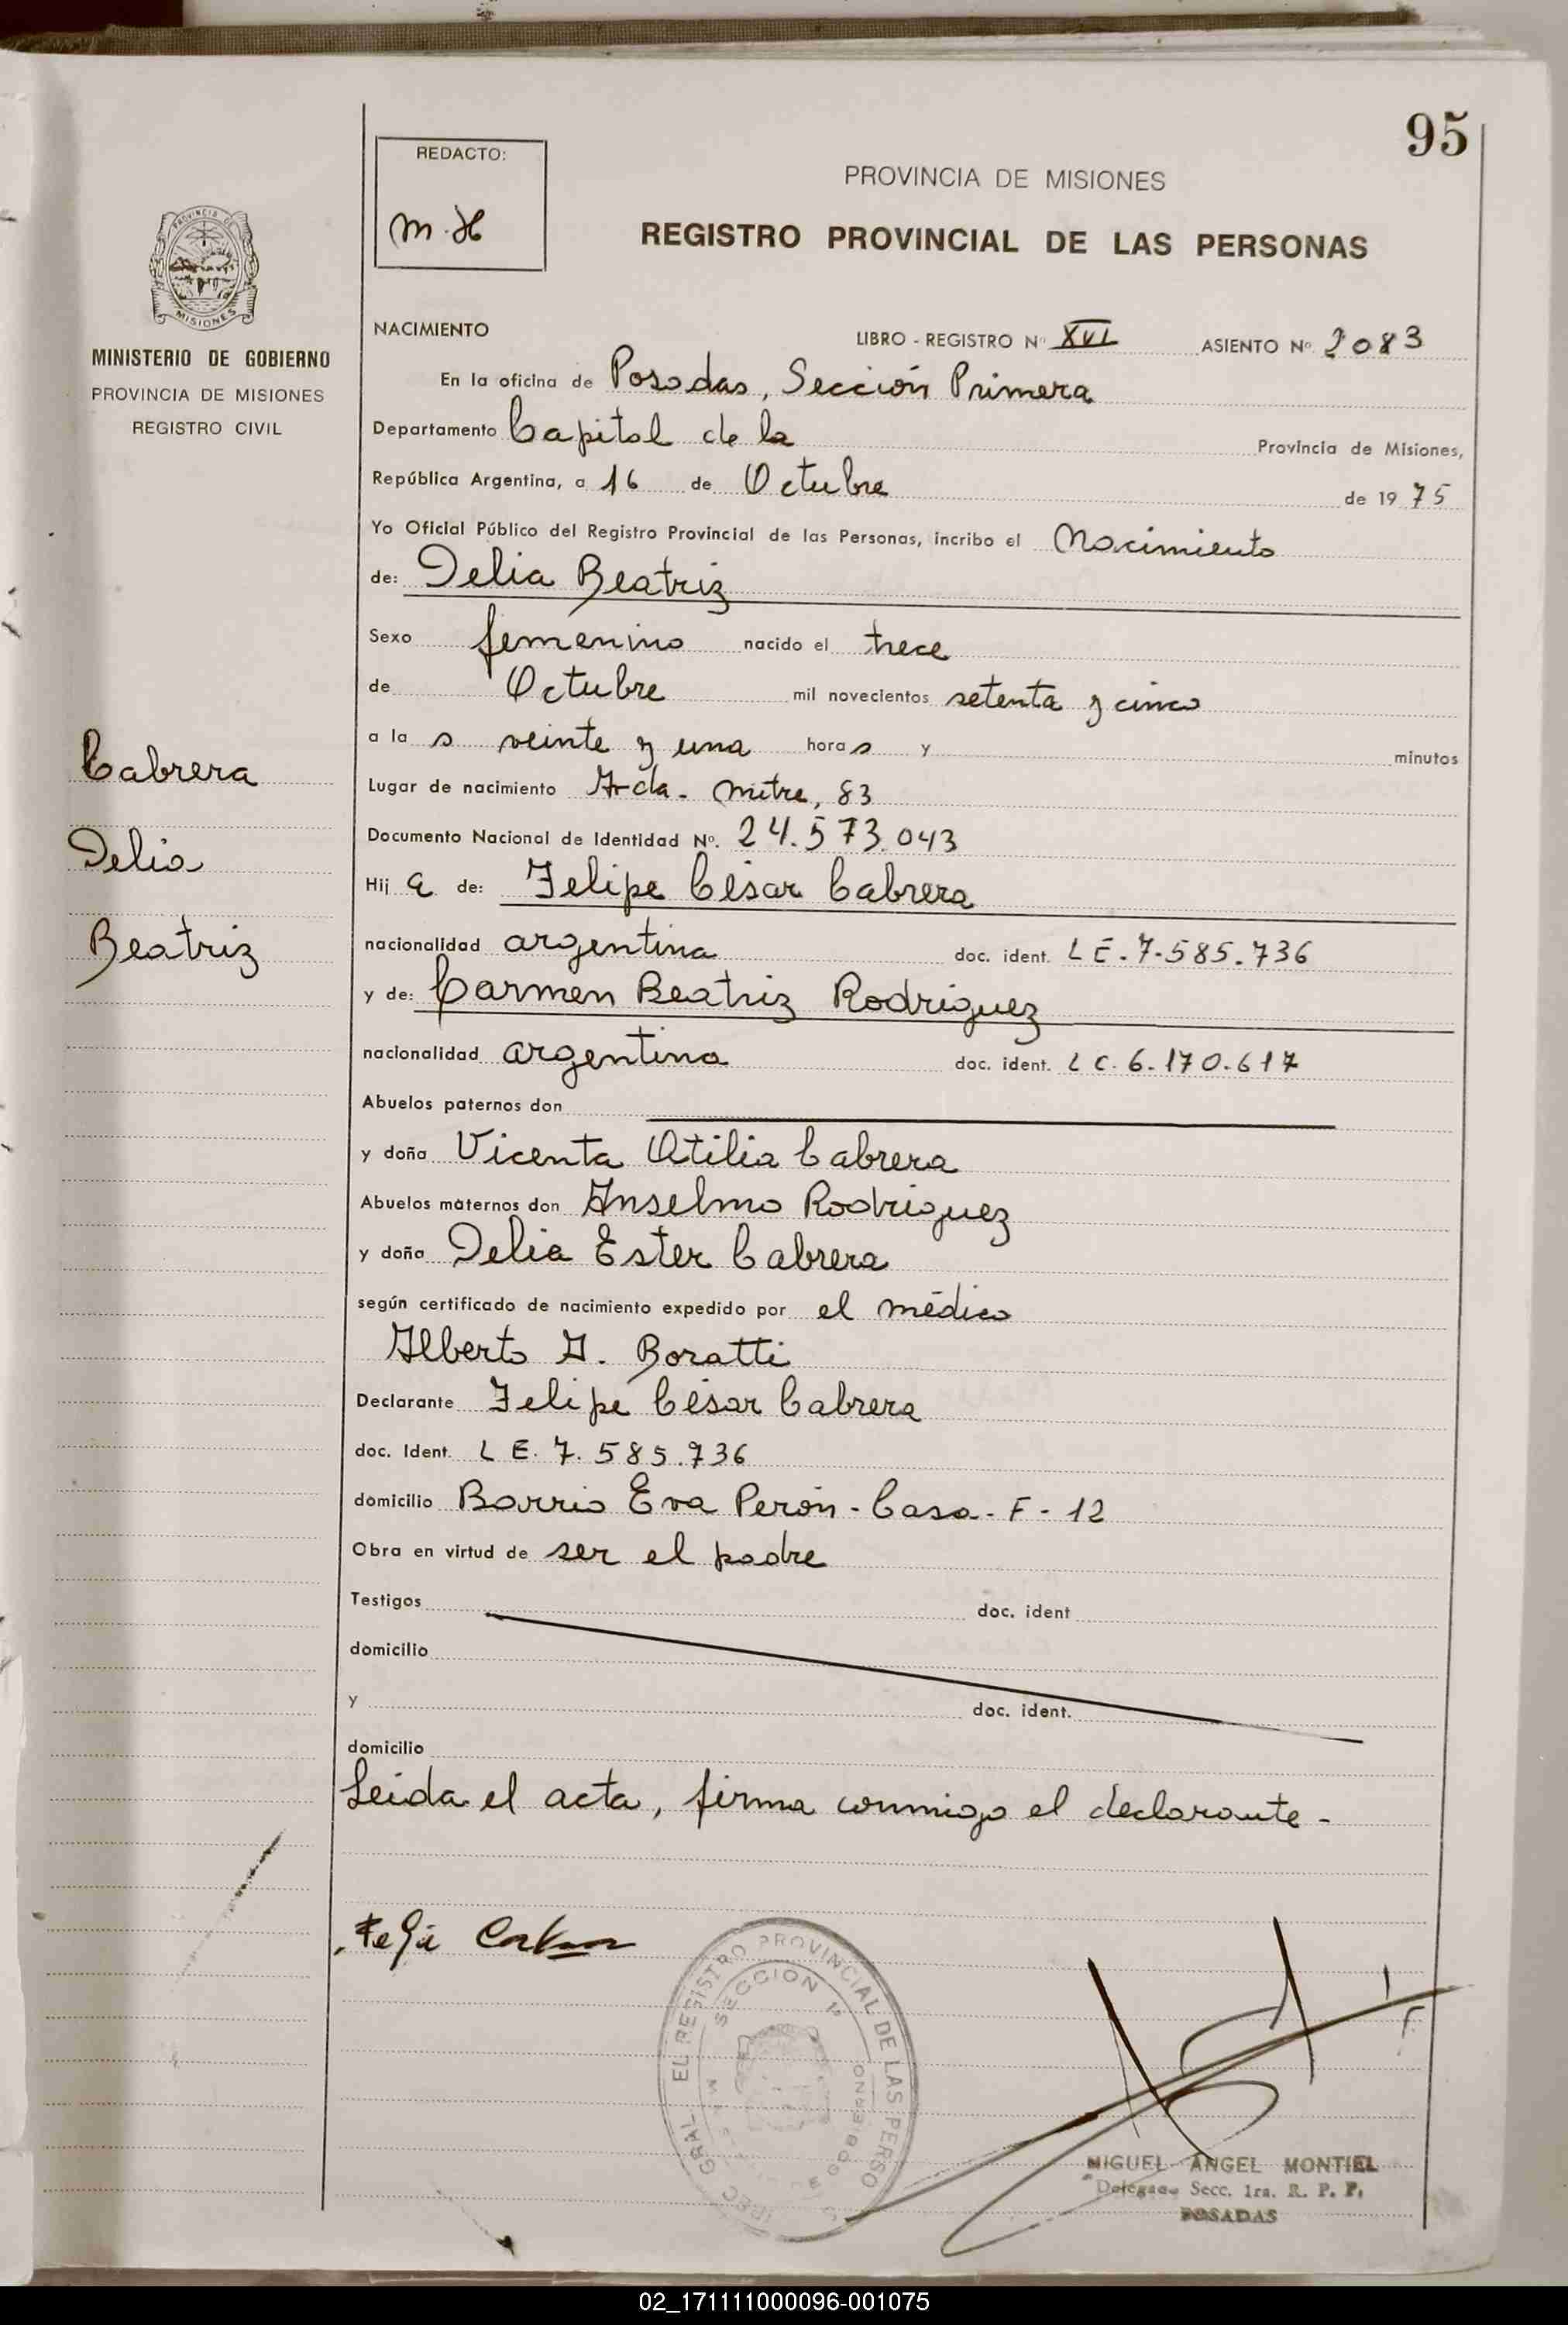 95
REDACTO:
M. H
PROVINCIA DE MISIONES
REGISTRO PROVINCIAL DE LAS PERSONAS
PROVINCIA DE
MISIONES
MINISTERIO DE GOBIERNO
PROVINCIA DE MISIONES
REGISTRO CIVIL
NACIMIENTO LIBRO - REGISTRO Nº XVI ASIENTO Nº 2083
En la oficina de Posadas, Sección Primera
Departamento Capital de la Provincia de Misiones,
República Argentina, a 16 de Octubre de 1975
Yo Oficial Público del Registro Provincial de las Personas, incribo el Nacimiento
de: Delia Beatriz
Sexo femenino nacido el trece
de Octubre mil novecientos setenta y cinco
a la s veinte y una horas y minutos
Cabrera
Delia
Beatriz
Lugar de nacimiento Avda. Mitre, 83
Documento Nacional de Identidad Nº. 24.573.043
Hija de: Felipe César Cabrera
nacionalidad argentina doc. ident. L E. 7.585.736
y de: Carmen Beatriz Rodriguez
nacionalidad argentina doc. ident. L C. 6.170.617
Abuelos paternos don
y doña Vicenta Otilia Cabrera
Abuelos maternos don Anselmo Rodriguez
y doña Delia Ester Cabrera
según certificado de nacimiento expedido por el médico
Alberto A. Boratti
Declarante Felipe César Cabrera
doc. Ident. L E. 7.585.736
domicilio Barrio Eva Perón - Casa - F - 12
Obra en virtud de ser el padre
Testigos doc. ident
domicilio
y doc. ident.
domicilio
Leida el acta, firma conmigo el declarante -
EL REGISTRO PROVINCIAL DE LAS PERSO
SECCION 1ª
GOBIERNO
GRAL
MIGUEL ANGEL MONTIEL
Delegado Secc. 1ra. R. P. P.
POSADAS
02_171111000096-001075